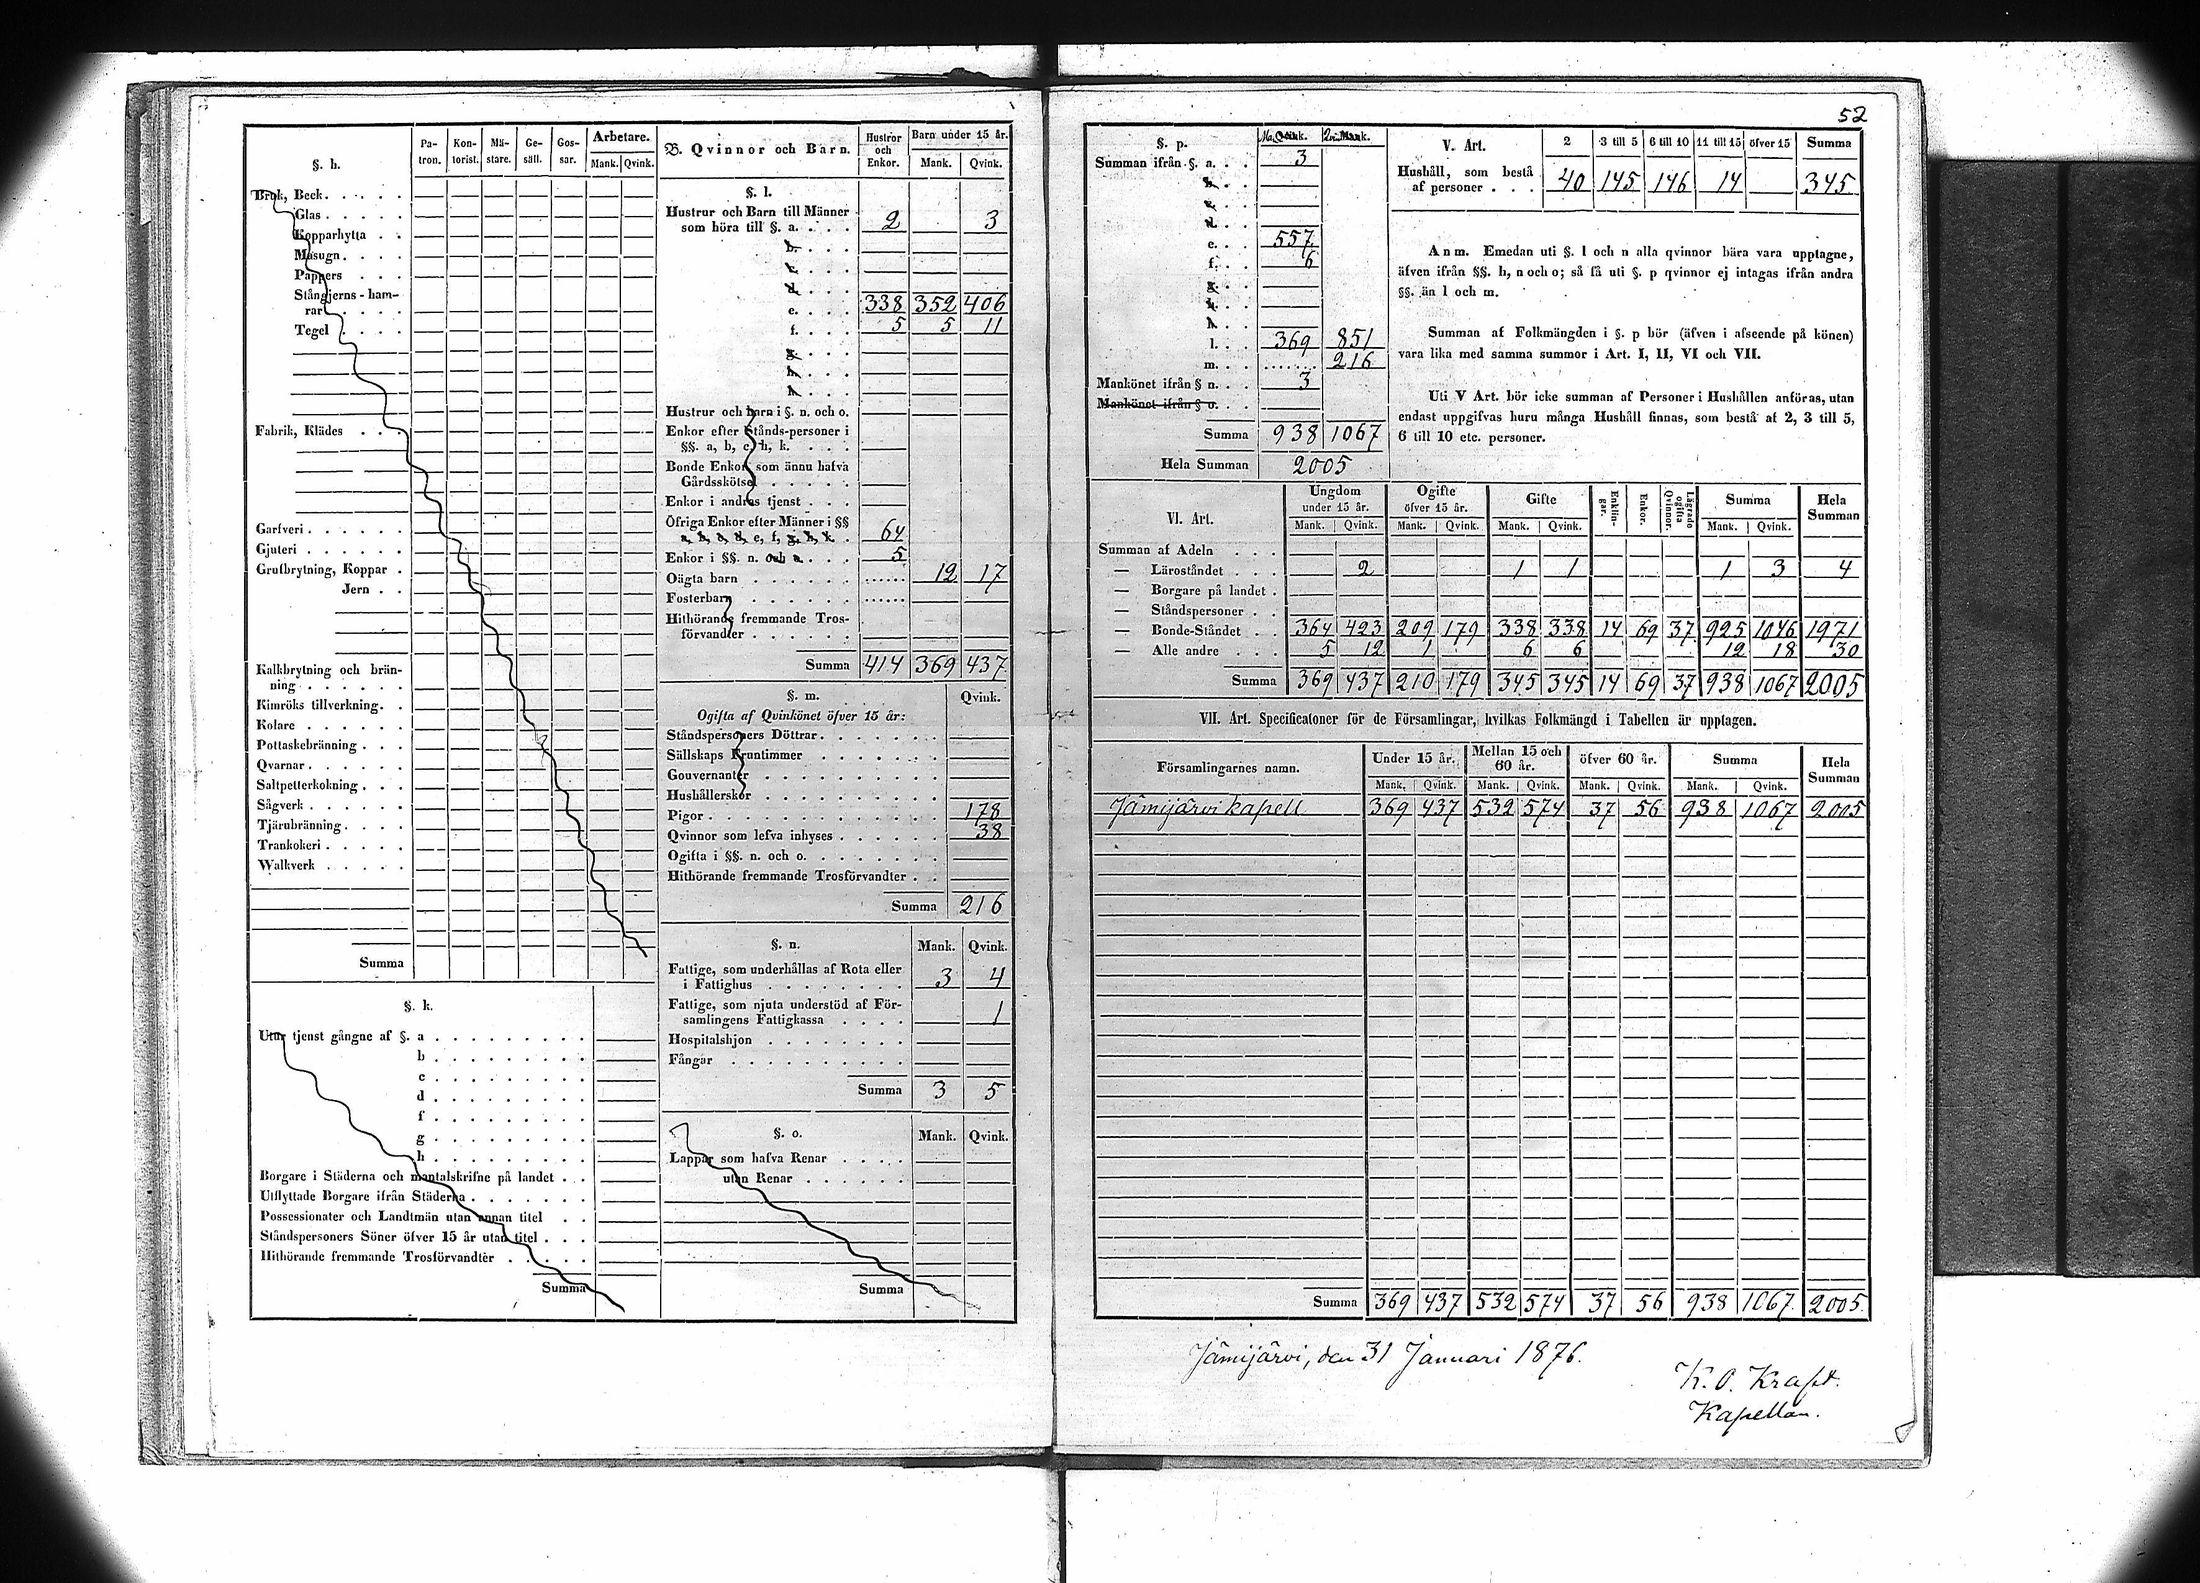 52
§. h.
Pa-tron. Kon-torist. Mä-stare. Ge-säll. Gos-sar. Arbetare. Mank. Qvink.
Bruk, Beck
Glas
Kopparhytta
Masugn
Pappers
Stångjerns-ham-
rar
Tegel
Fabrik, Klädes
Garfveri
Gjuteri
Grufbrytning, Koppar
Jern
Kalkbrytning och brän-
ning
Kimröks tillverkning
Kolare
Pottaskebränning
Qvarnar
Saltpetterkokning
Sågverk
Tjärubränning
Trankokeri
Walkverk
Summa
§. k.
Utur tjenst gångne af §. a
b
c
d
f
g
h
Borgare i Städerna och mantalskrifne på landet
Utflyttade Borgare ifrån Städerna
Possessionater och Landtmän utan annan titel
Ståndspersoners Söner öfver 15 år utan titel
Hithörande fremmande Trosförvandter
Summa
B. Qvinnor och Barn. Hustror och Enkor. Barn under 15 år. Mank. Qvink.
§. l.
Hustrur och Barn till Männer
som höra till §. a. 2 3
b.
c.
d.
e. 338 352 406
f. 5 5 11
g.
h.
k.
Hustrur och barn i §. n. och o.
Enkor efter Stånds-personer i
§§. a, b, c, h, k.
Bonde Enkor som ännu hafva
Gårdsskötsel
Enkor i andras tjenst
Öfriga Enkor efter Männer i §§
a, b, c, d, e, f, g, h, k 64
Enkor i §§. n. och o. 5
Oägta barn 12 17
Fosterbarn
Hithörande fremmande Tros-
förvandter
Summa 414 369 437
§. m. Qvink.
Ogifta af Qvinkönet öfver 15 år:
Ståndspersoners Döttrar
Sällskaps Fruntimmer
Gouvernanter
Hushållerskor
Pigor 178
Qvinnor som lefva inhyses 38
Ogifta i §§. n. och o.
Hithörande fremmande Trosförvandter
Summa 216
§. n. Mank. Qvink.
Fattige, som underhållas af Rota eller
i Fattighus 3 4
Fattige, som njuta understöd af För-
samlingens Fattigkassa 1
Hospitalshjon
Fångar
Summa 3 5
§. o. Mank. Qvink.
Lappar som hafva Renar
utan Renar
Summa
§. p.
Summan ifrån §. a. 3
b.
c.
d.
e. 557
f. 6
g.
h.
k.
l. 369 851
m. 216
Mankönet ifrån § n. 3
Mankönet ifrån § o.
Summa 938 1067
Hela Summan 2005
V. Art. 2 3 till 5 6 till 10 11 till 15 öfver 15 Summa
Hushåll, som bestå
af personer 40 145 146 14 345
Anm. Emedan uti §. l och n alla qvinnor bära vara upptagne,
äfven ifrån §§. h, n och o; så få uti §. p qvinnor ej intagas ifrån andra
§§. än l och m.
Summan af Folkmängden i §. p bör (äfven i afseende på könen)
vara lika med samma summor i Art. I, II, VI och VII.
Uti V Art. bör icke summan af Personer i Hushållen anföras, utan
endast uppgifvas huru många Hushåll finnas, som bestå af 2, 3 till 5,
6 till 10 etc. personer.
VI. Art. Ungdom under 15 år. Ogifte öfver 15 år. Gifte Enklin-gar. Enkor. Lägrade ogifta Qvinnor. Summa Hela Summan
Mank. Qvink. Mank. Qvink. Mank. Qvink. Mank. Qvink.
Summan af Adeln
— Läroståndet 2 1 1 1 3 4
— Borgare på landet
— Ståndspersoner
— Bonde-Ståndet 364 423 209 179 338 338 14 69 37 925 1046 1971
— Alle andre 5 12 1 6 6 12 18 30
Summa 369 437 210 179 345 345 14 69 37 938 1067 2005
VII. Art. Specificatoner för de Församlingar, hvilkas Folkmängd i Tabellen är upptagen.
Församlingarnes namn. Under 15 år. Mellan 15 och 60 år. öfver 60 år. Summa Hela Summan
Mank. Qvink. Mank. Qvink. Mank. Qvink. Mank. Qvink.
Jämijärvi kapell 369 437 532 574 37 56 938 1067 2005
Summa 369 437 532 574 37 56 938 1067 2005
Jämijärvi, den 31 Januari 1876.
K. O. Kraft.
Kapellan.